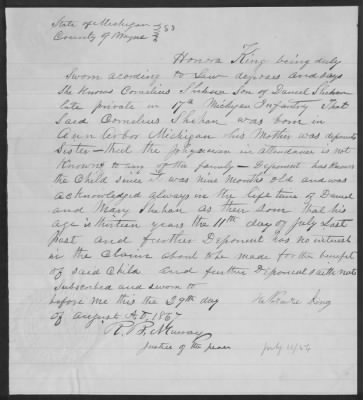 State of Michigan } ss
County of Wayne }
Honora King being duly
Sworn acording to Law deposes and says
She Knows Cornelius Shehan Son of Daniel Shehan
late private in 17th Michigan Infantry That
Said Cornelius Shehan was born in
Ann Arbor Michigan his Mother was deponents
Sister - that the physician in attendance is not
Known to any of the family - Deponent has Known
the Child since it was nine months old and was
acknowledged always in the life time of Daniel
and Mary Shehan as their Son that his
age is thirteen years the 11th day of July last
past and further Deponent has no interest
in the Claim about to be made for the benefit
of said Child and further Deponent saith not
Subscribed and sworn to
before me this the 29th day
of August A.D. 1867
King
R. B. Murray
Justice of the peace
July 11/54